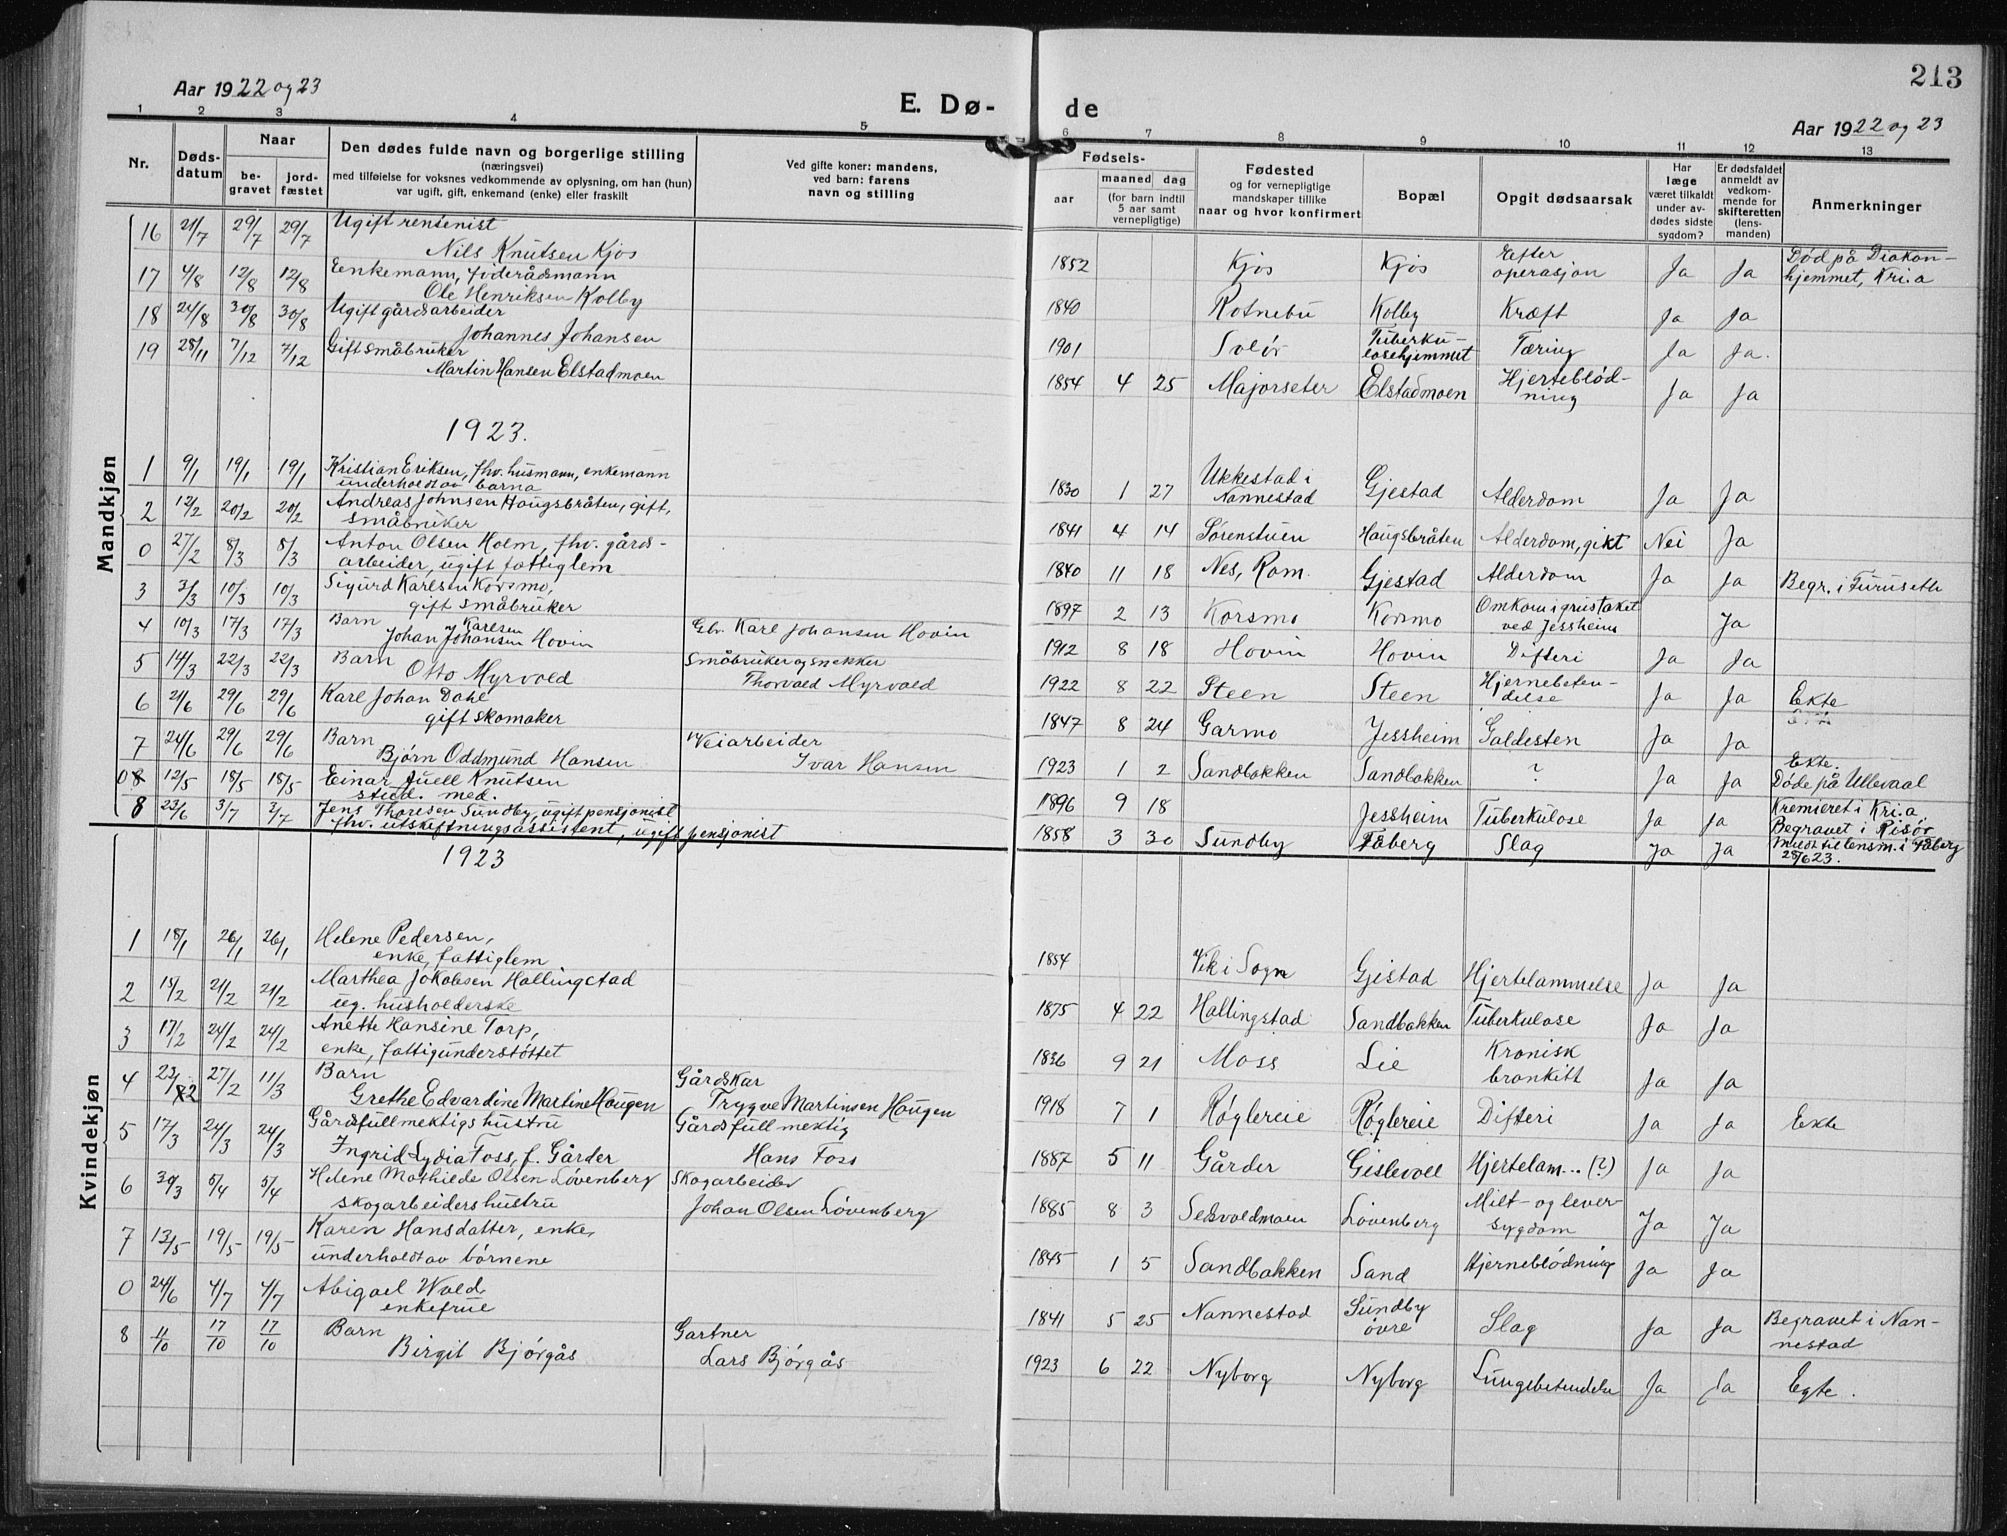 213
Aar 1922 og 23
E. Dø-
de
Aar 1922 og 23
1 2 3 4 5 6 7 8 9 10 11 12 13
Nr.
Døds-
datum
Naar
be-
gravet
jord-
fæstet
Den dødes fulde navn og borgerlige stilling
(næringsvei)
med tilføielse for voksnes vedkommende av oplysning, om han (hun)
var ugift, gift, enkemand (enke) eller fraskilt
Ved gifte koner: mandens,
ved barn: farens
navn og stilling
Fødsels-
aar
maaned dag
(for barn indtil
5 aar samt
vernepligtige)
Fødested
og for vernepligtige
mandskaper tillike
naar og hvor konfirmert
Bopæl
Opgit dødsaarsak
Har
læge
været tilkaldt
under av-
dødes sidste
sygdom?
Er dødsfaldet
anmeldt av
vedkom-
mende for
skifteretten
(lens-
manden)
Anmerkninger
Mandkjøn
16 21/7 29/7 29/7 Ugift rentenist
Nils Knutsen Kjos
1852 Kjos Kjos Efter operasjon Ja Ja Død på Diakon-
hjemmet, Kri.a
17 4/8 12/8 12/8 Enkemann, föderådsmann
Ole Henriksen Kolby
1840 Rotnebu Kolby Kræft Ja Ja
18 24/8 30/8 30/8 Ugift gårdsarbeider
Johannes Johansen
1901 Solør Tuberku-
losehjemmet Tæring Ja Ja.
19 28/11 7/12 7/12 Gift småbruker
Martin Hansen Elstadmoen
1854 4 25 Majorseter Elstadmoen Hjerteblød-
ning Ja Ja
1923.
1 9/1 19/1 19/1 Kristian Eriksen, fhv. husmann, enkemann
underholdt av barna
1830 1 27 Ukkestad i
Nannestad Gjestad Alderdom Ja Ja
2 12/2 20/2 20/2 Andreas Johnsen Haugsbråten, gift,
småbruker
1841 4 14 Sørenstuen Haugsbråten Alderdom, gikt Nei Ja
0 27/2 8/3 8/3 Anton Olsen Holm, fhv. gårds-
arbeider, ugift fattiglem
1840 11 18 Nes, Rom. Gjestad Alderdom Ja Ja Begr. i Furuseth
3 3/3 10/3 10/3 Sigurd Karlsen Korsmo,
gift småbruker
1897 2 13 Korsmo Korsmo Omkom i grustaket
ved Jessheim Ja
4 10/3 17/3 17/3 Barn
Karlsen
Johan Johansen Hovin
Gbr. Karl Johansen Hovin
1912 8 18 Hovin Hovin Difteri Ja Ja
5 14/3 22/3 22/3 Barn
Otto Myrvold
Småbruker og snekker
Thorvald Myrvold
1922 8 22 Steen Steen Hjernebeten-
delse Ja Ja Ekte
6 21/6 29/6 29/6 Karl Johan Dahl
gift skomaker
1847 8 24 Garmo Jessheim Galdesten Ja Ja
7 24/6 29/6 29/6 Barn
Bjørn Oddmund Hansen
Veiarbeider
Ivar Hansen
1923 1 2 Sandbakken Sandbakken ? Ja Ja Ekte.
0 12/5 18/5 18/5 Einar Juell Knutsen
stud. med.
1896 9 18 Jessheim Tuberkulose Ja Ja Døde på Ullevaal
Kremieret i Kri.a
Begravet i Risør
8 23/6 3/7 3/7 Jens Thoresen Sundby, ugift pensjonist
fhv. utskiftningsassistent, ugift pensjonist
1858 3 30 Sundby Fåberg Slag Ja Ja Meldt til lensm. i Fåberg
28/6 23.
Kvindekjøn
1923
1 18/1 26/1 26/1 Helene Pedersen,
enke, fattiglem
1854 Vik i Sogn Gjestad Hjertelammelse Ja Ja
2 15/2 21/2 21/2 Marthea Jokobsen Hallingstad
ug. husholderske
1875 4 22 Hallingstad Sandbakken Tuberkulose Ja Ja
3 17/12 24/2 24/2 Anette Hansine Torp,
enke, fattigunderstøttet
1836 9 21 Moss Lie Kronisk
bronkitt Ja Ja
4 23/2 27/2 11/3 Barn
Grethe Edvardine Martine Haugen
Gårdskar
Trygve Martinsen Haugen
1918 7 1 Røglereie Røglereie Difteri Ja Ja Ekte
5 17/3 24/3 24/3 Gårdsfullmektigs hustru
Ingrid Lydia Foss, f. Gårder
Gårdsfullmektig
Hans Foss
1887 5 11 Gårder Gislevoll Hjertelam... (?) Ja Ja
6 30/3 5/4 5/4 Helene Mathilde Olsen Løvenberg
skogarbeiders hustru
Skogarbeider
Johan Olsen Løvenberg
1885 8 3 Løvenberg Milt- og lever-
sygdom Ja Ja
7 13/5 19/5 19/5 Karen Hansdatter, enke,
underholdt av börnene
1845 1 5 Sandbakken Sand Hjerneblödning Ja Ja
0 24/6 4/7 4/7 Abigael Wold
enkefrue
1841 5 25 Nannestad Sundby
øvre Slag Ja Ja Begravet i Nan-
nestad
8 11/10 17/10 17/10 Barn
Birgit Bjørgås
Gartner
Lars Bjørgås
1923 6 22 Nyborg Nyborg Lungebetendelse Ja Ja Egte.